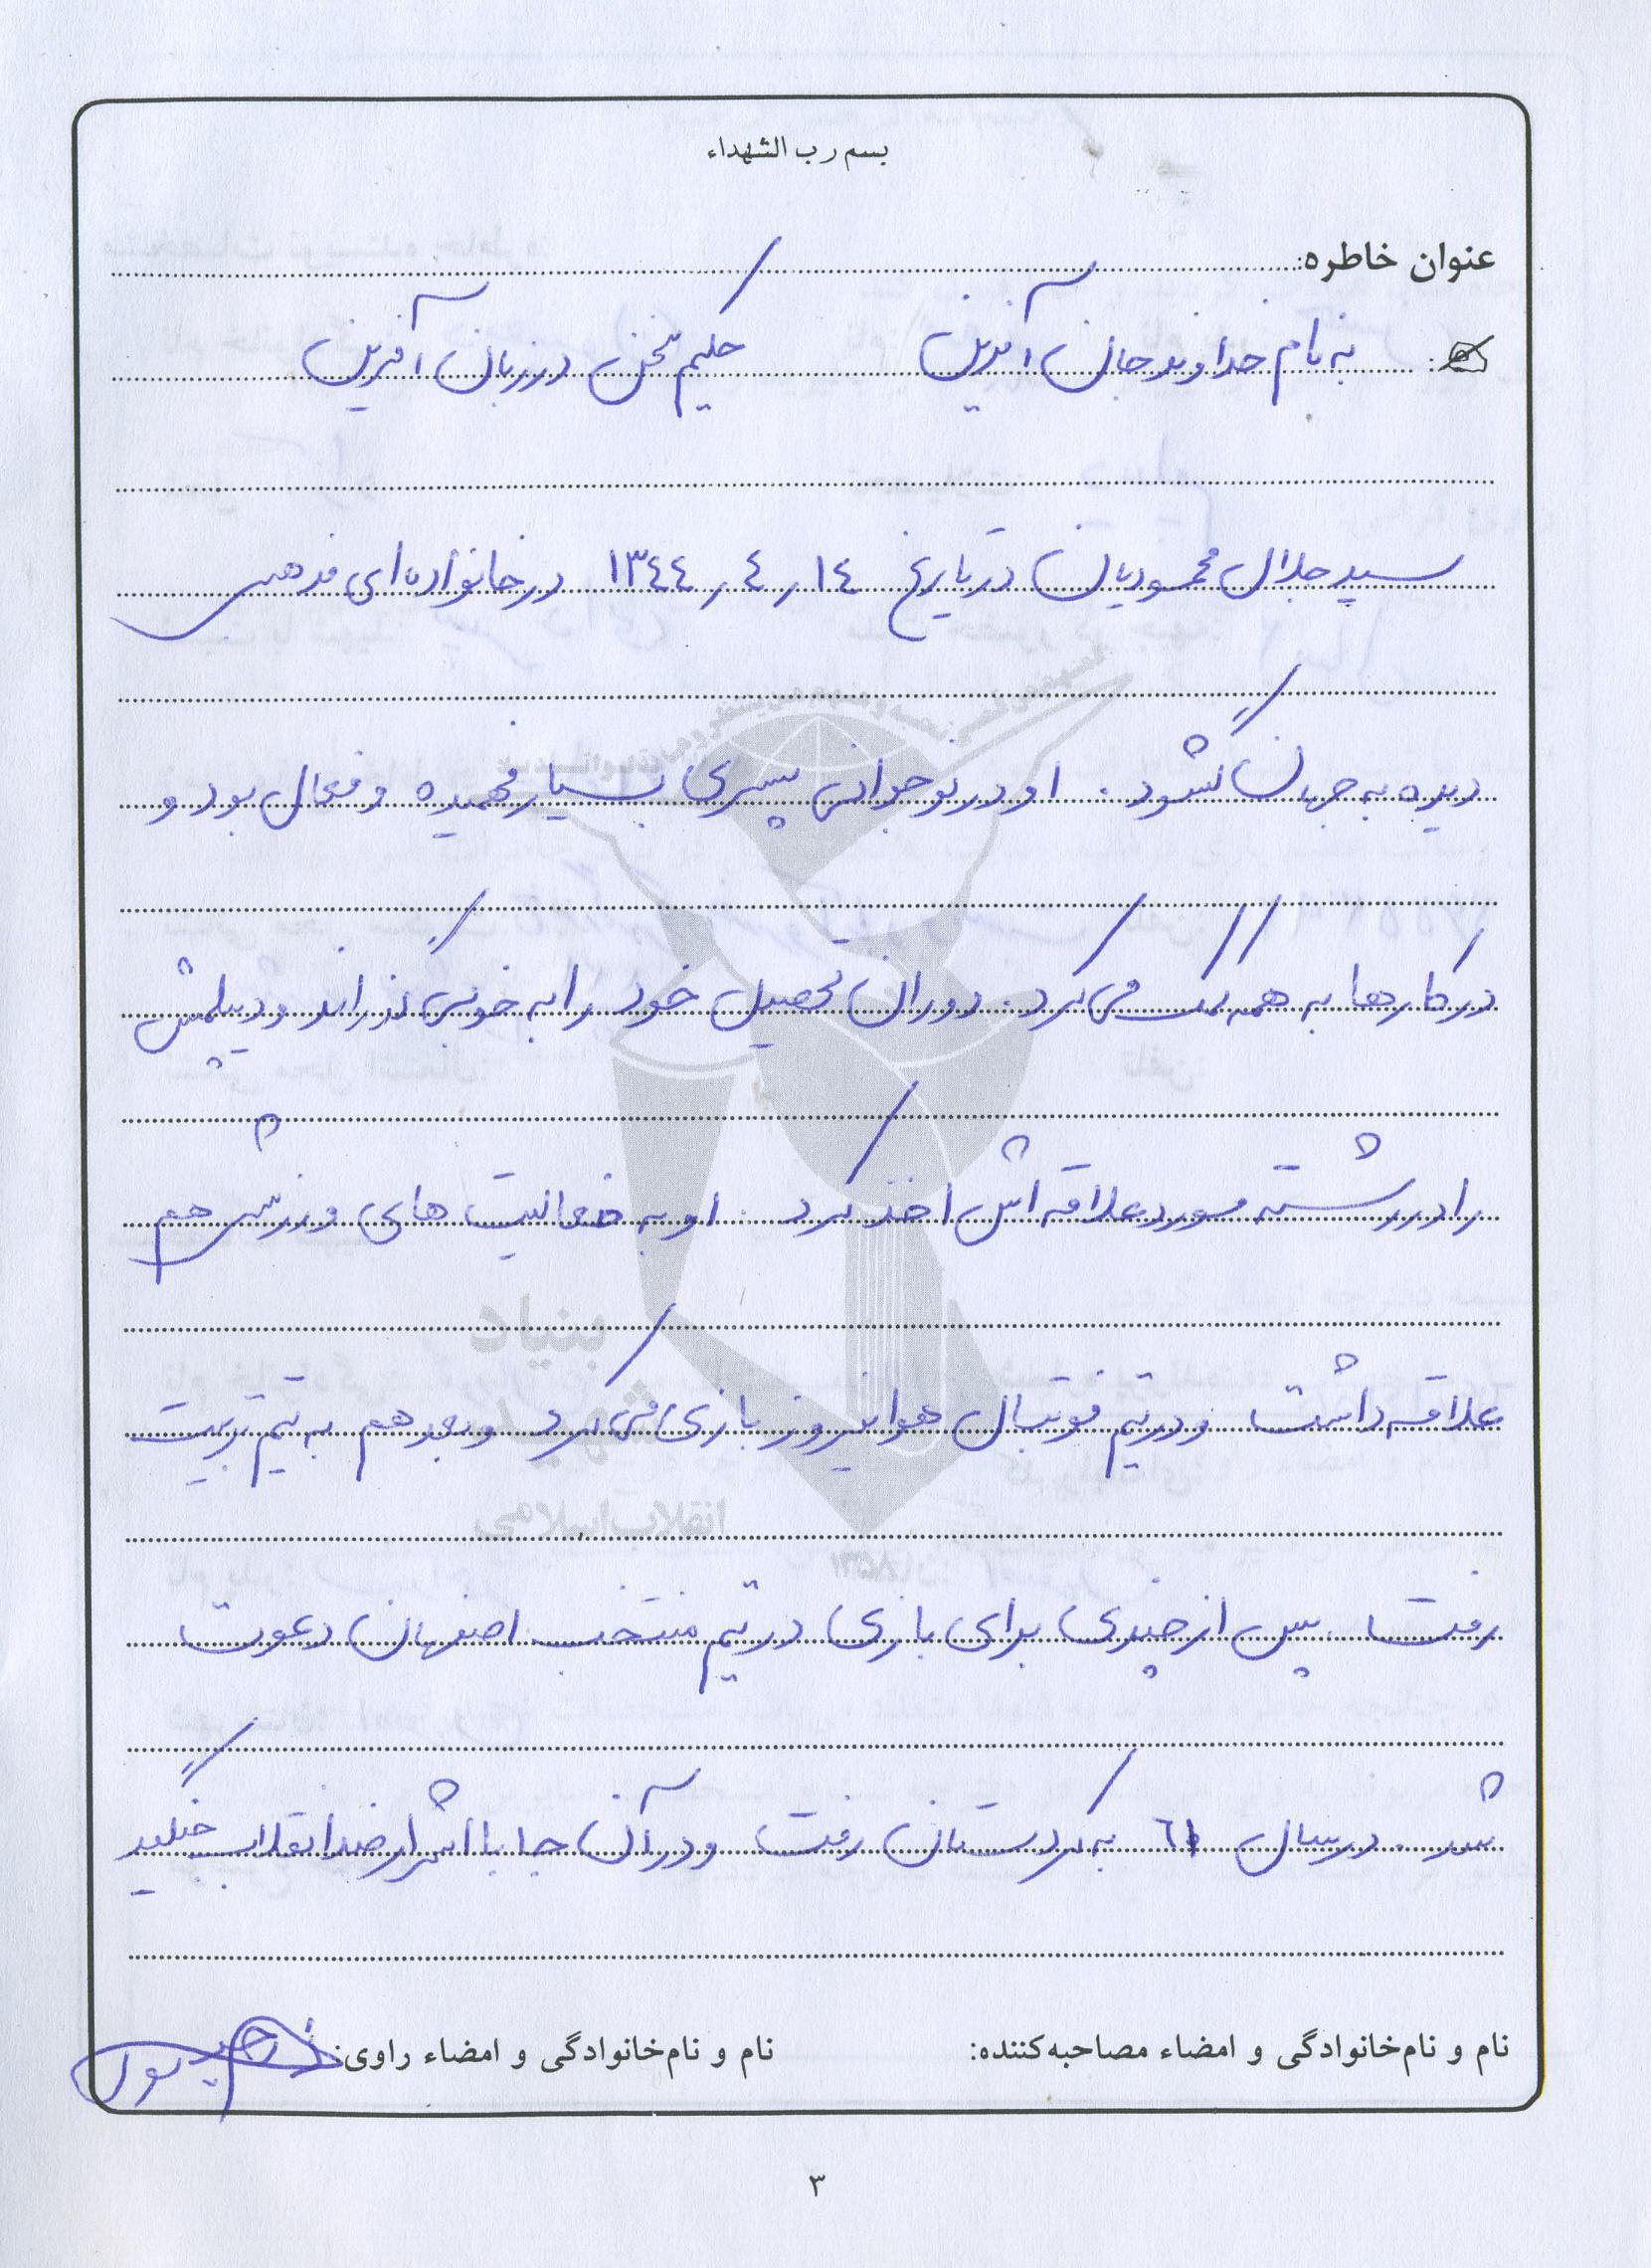 بسم رب الشهداء
عنوان خاطره:
به نام خداوند جان آفرین حکیم سخن در زبان آفرین
سید جلال محمودیان در تاریخ ١٤ر٤ر١٣٤٤ در خانواده ای مذهبی
دیده به جهان گشود. او در نوجوانی پسری بسیار فهمیده و فعال بود و
در کارها به همه کمک می کرد. دوران تحصیل خود را به خوبی گذراند و دیپلمش
را در رشته مورد علاقه اش اخذ کرد. او به فعالیت های ورزشی هم
علاقه داشت و در تیم فوتبال هوانیروز بازی می کرد و بعد هم به تیم تربیت
رفت. پس از چندی برای بازی در تیم منتخب اصفهان دعوت
شد. در سال ٦١ به کردستان رفت و در آن جا با اشرار ضد انقلاب جنگید
نام و نام‌خانوادگی و امضاء مصاحبه‌کننده: نام و نام‌خانوادگی و امضاء راوی:
بنیاد
شهید
۳